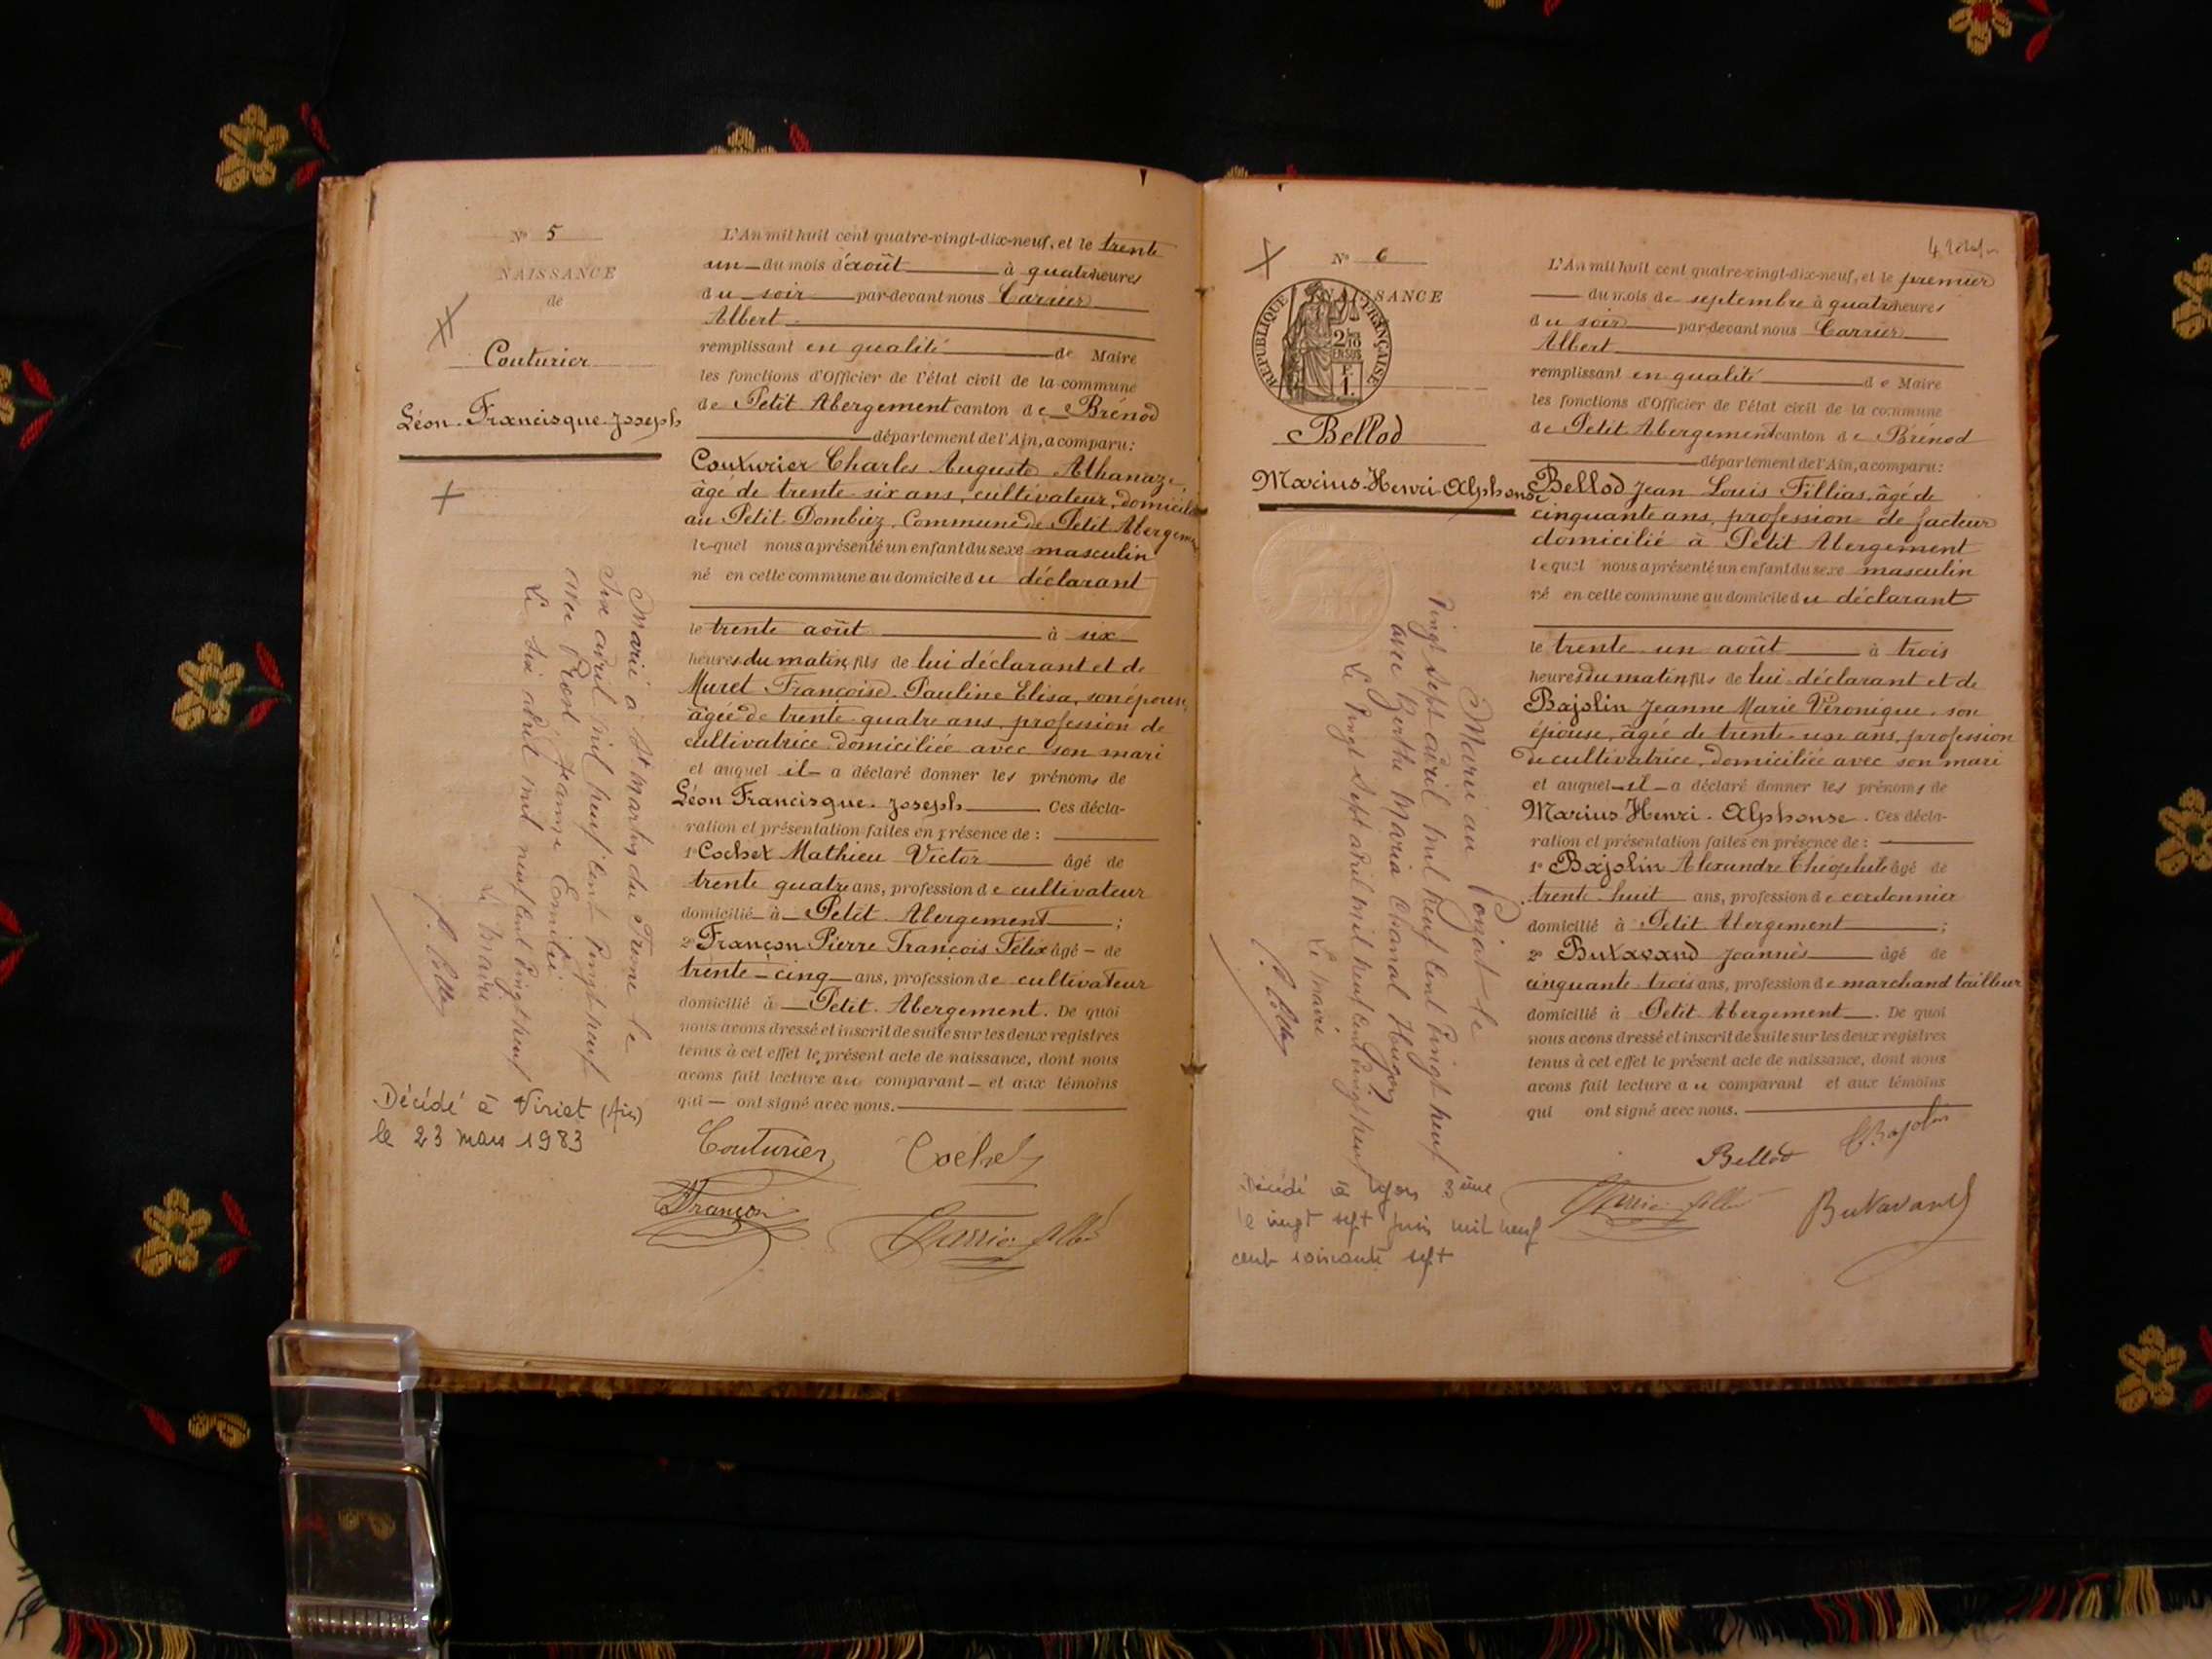 N° 5
NAISSANCE
de
Couturier
Léon Francisque Joseph
L'An mil huit cent quatre-vingt-dix-neuf, et le trente
un du mois d'août à quatre heures
du soir par-devant nous Carrier
Albert
remplissant en qualité de Maire
les fonctions d'Officier de l'état civil de la commune
de Petit Abergement canton de Brénod
département de l'Ain, a comparu :
Couturier Charles Auguste Athanaze,
âgé de trente-six ans, cultivateur, domicilié
au Petit Dombiez, Commune de Petit Abergement
lequel nous a présenté un enfant du sexe masculin
né en cette commune au domicile du déclarant
le trente août à six
heures du matin, fils de lui déclarant et de
Muret Françoise Pauline Elisa, son épouse,
âgée de trente-quatre ans, profession de
cultivatrice domiciliée avec son mari
et auquel il a déclaré donner les prénoms de
Léon Francisque Joseph Ces décla-
ration et présentation faites en présence de :
1° Cochet Mathieu Victor âgé de
trente quatre ans, profession de cultivateur
domicilié à Petit Abergement ;
2° Françon Pierre François Félix âgé de
trente-cinq ans, profession de cultivateur
domicilié à Petit Abergement. De quoi
nous avons dressé et inscrit de suite sur les deux registres
tenus à cet effet le présent acte de naissance, dont nous
avons fait lecture au comparant et aux témoins
qui ont signé avec nous.
Couturier Cochet
Françon Carrier Albert
Marié à St Martin du Frene le
Six avril mil neuf cent vingt neuf
avec Prost Jeanne Emilie.
Le six avril mil neuf cent vingt neuf
Le Maire
Décédé à Viriat (Ain)
le 23 mars 1983
N° 6
NAISSANCE
RÉPUBLIQUE FRANÇAISE
2/10
EN SUS
F.
1.
Bellod
Marius-Henri-Alphonse
L'An mil huit cent quatre-vingt-dix-neuf, et le premier
du mois de septembre à quatre heures
du soir par-devant nous Carrier
Albert
remplissant en qualité de Maire
les fonctions d'Officier de l'état civil de la commune
de Petit Abergement canton de Brénod
département de l'Ain, a comparu :
Bellod Jean Louis Fillias, âgé de
cinquante ans, profession de facteur
domicilié à Petit Abergement
lequel nous a présenté un enfant du sexe masculin
né en cette commune au domicile du déclarant
le trente un août à trois
heures du matin, fils de lui déclarant et de
Bajolin Jeanne Marie Véronique, son
épouse, âgée de trente-un ans, profession
de cultivatrice, domiciliée avec son mari
et auquel il a déclaré donner les prénoms de
Marius Henri Alphonse. Ces décla-
ration et présentation faites en présence de :
1° Bajolin Alexandre Théophile âgé de
trente-huit ans, profession de cordonnier
domicilié à Petit Abergement ;
2° Butavand Joannès âgé de
cinquante trois ans, profession de marchand tailleur
domicilié à Petit Abergement. De quoi
nous avons dressé et inscrit de suite sur les deux registres
tenus à cet effet le présent acte de naissance, dont nous
avons fait lecture au comparant et aux témoins
qui ont signé avec nous.
Bellod Bajolin
Carrier Albert Butavand
Marié au Poizat le
Vingt sept avril mil neuf cent vingt neuf
avec Berthe Maria Chanal Hugon
Le vingt sept avril mil neuf cent vingt neuf
Le Maire
Décédé à Lyon 3ème
le vingt sept juin mil neuf
cent soixante sept